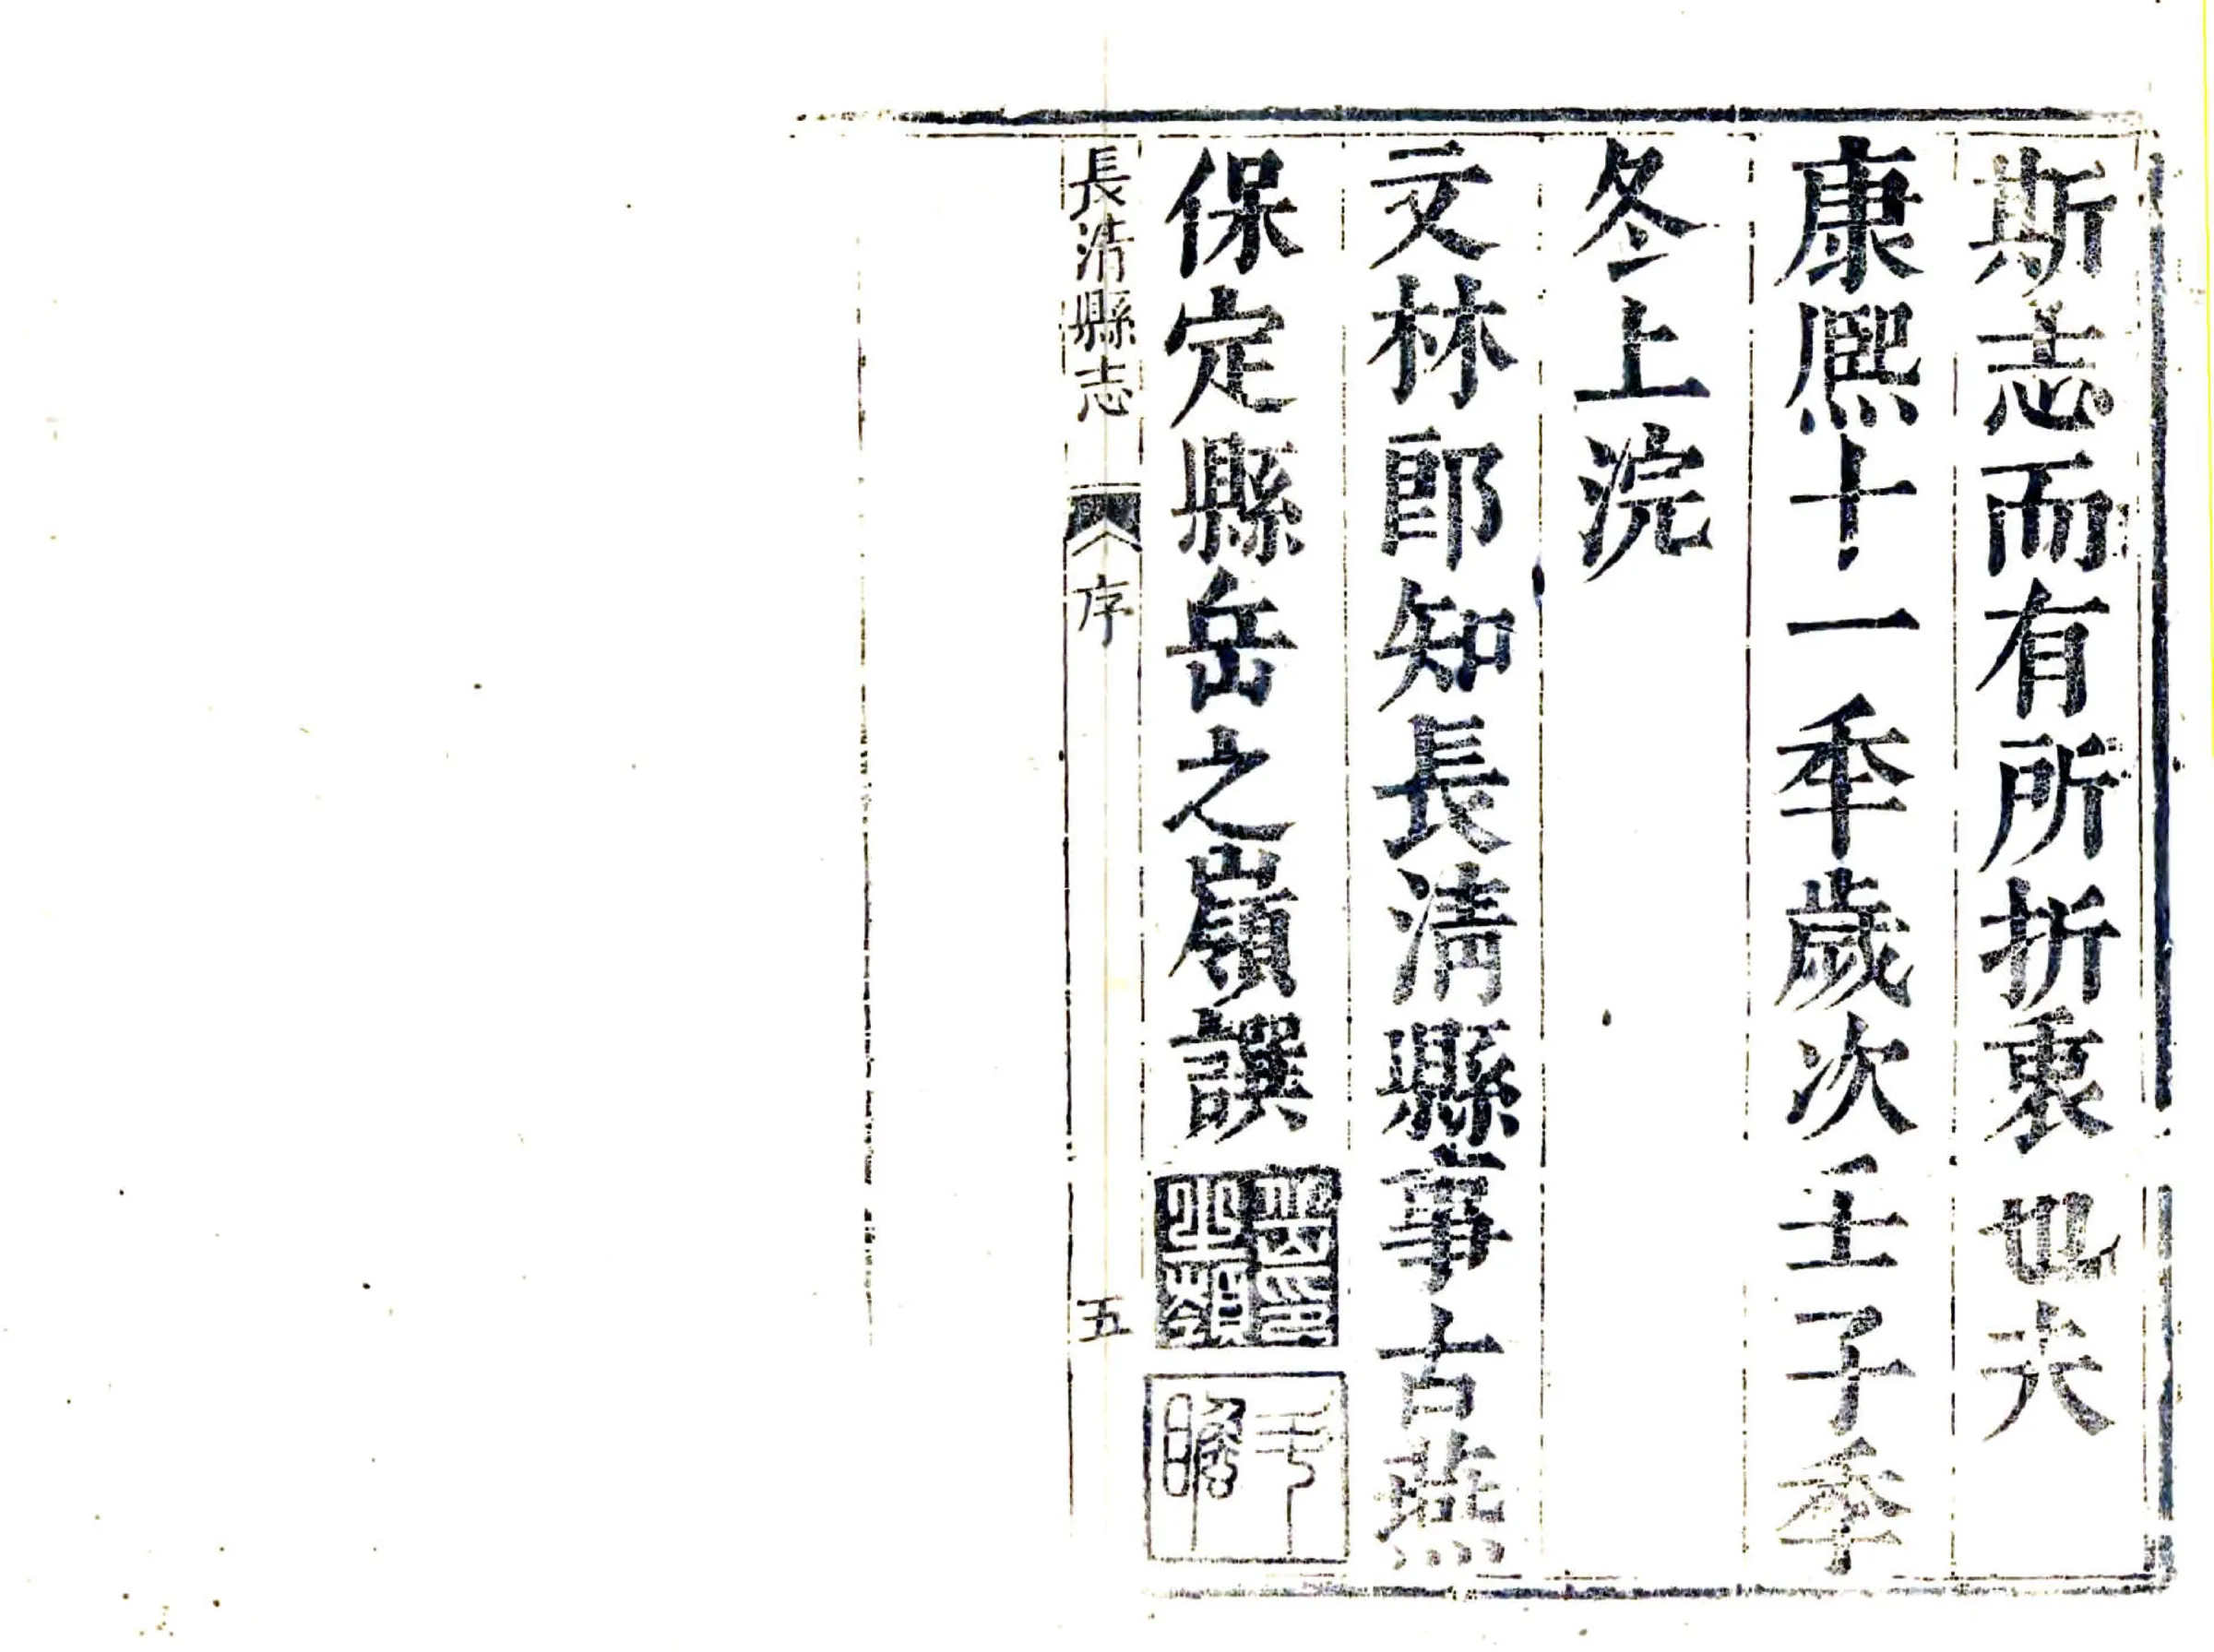 斯志而有所折衷也夫
康熙十一秊歲次壬子季
冬上浣
文林郎知長清縣事古燕
保定縣岳之嶺譔
岳印之嶺
長清縣志 序 五